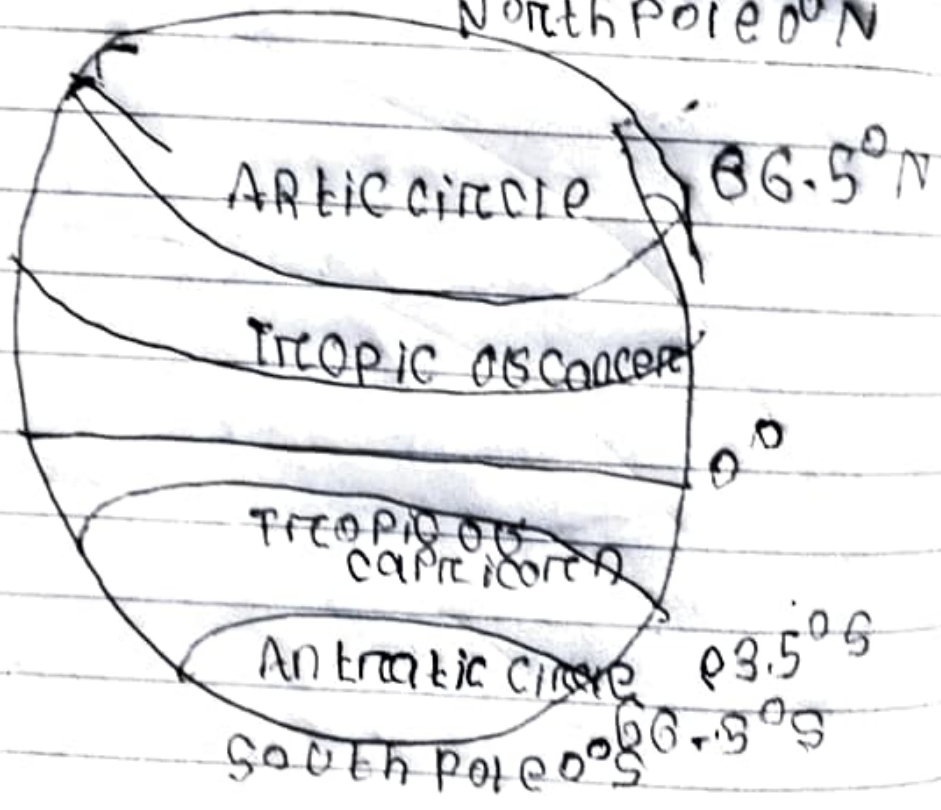 North Pole 0°N
66.5°N
ARtic circle
Tropic of Cancer
0°
Tropic of
capricorn
Antratic circle
23.5°S
66.5°S
South pole 0°S